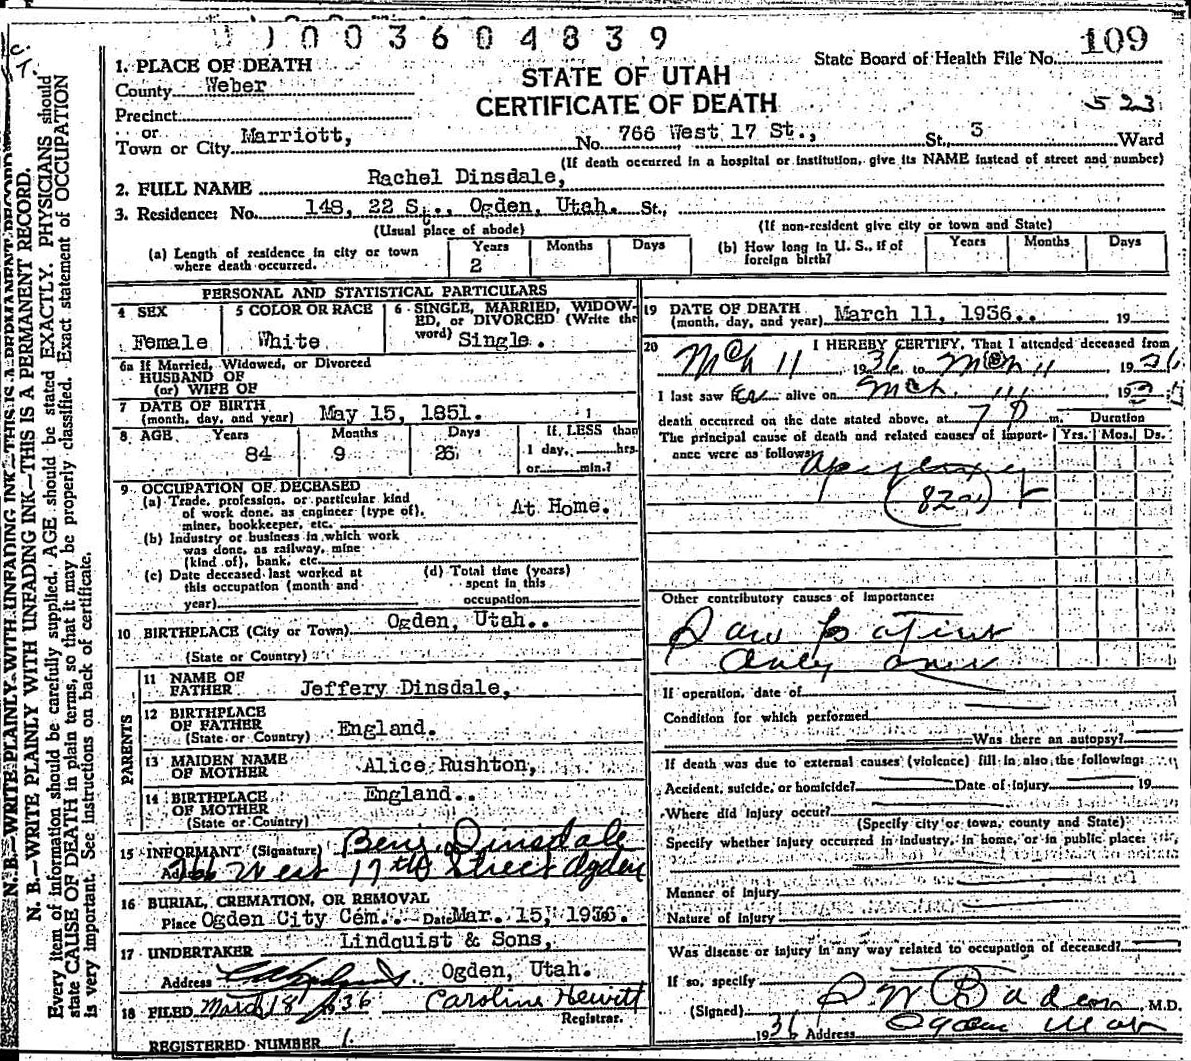 0 1 0 0 3 6 0 4 8 3 9
State Board of Health File No. 109
C.
T.
STATE OF UTAH
CERTIFICATE OF DEATH
523
1. PLACE OF DEATH
County Weber
Precinct
or
Town or City Marriott, No. 766 West 17 St., St., 3 Ward
(If death occurred in a hospital or institution, give its NAME instead of street and number)
2. FULL NAME Rachel Dinsdale,
3. Residence: No. 148, 22 St., Ogden, Utah. St.,
(Usual place of abode) (If non-resident give city or town and State)
(a) Length of residence in city or town where death occurred. Years 2 Months Days
(b) How long in U. S., if of foreign birth? Years Months Days
PERSONAL AND STATISTICAL PARTICULARS
4 SEX Female
5 COLOR OR RACE White
6 SINGLE, MARRIED, WIDOWED, or DIVORCED (Write the word) Single.
6a If Married, Widowed, or Divorced
HUSBAND OF
(or) WIFE OF
7 DATE OF BIRTH
(month, day, and year) May 15, 1851.
8 AGE Years 84 Months 9 Days 26
If LESS than
1 day, hrs.
or min.?
9 OCCUPATION OF DECEASED
(a) Trade, profession, or particular kind
of work done, as engineer (type of),
miner, bookkeeper, etc. At Home.
(b) Industry or business in which work
was done, as railway, mine
(kind of), bank, etc.
(c) Date deceased last worked at
this occupation (month and
year)
(d) Total time (years)
spent in this
occupation
10 BIRTHPLACE (City or Town) Ogden, Utah..
(State or Country)
PARENTS
11 NAME OF
FATHER Jeffery Dinsdale,
12 BIRTHPLACE
OF FATHER England.
(State or Country)
13 MAIDEN NAME
OF MOTHER Alice Rushton,
14 BIRTHPLACE
OF MOTHER England..
(State or Country)
15 INFORMANT (Signature) Benj. Dinsdale
Address 766 West 17th Street Ogden
16 BURIAL, CREMATION, OR REMOVAL
Place Ogden City Cem.. Date Mar. 15, 1936.
17 UNDERTAKER Lindquist & Sons,
Address Ogden, Utah.
18 FILED March 18 1936 Caroline Hewitt
Registrar.
REGISTERED NUMBER 1.
19 DATE OF DEATH
(month, day, and year) March 11, 1936.. 19
20 I HEREBY CERTIFY, That I attended deceased from
Mch 11 1936, to Mch 11 1936
I last saw her alive on Mch. 11 1936
death occurred on the date stated above, at 7 P m.
Duration
The principal cause of death and related causes of importance were as follows: Yrs. Mos. Ds.
Apoplexy
(82a)
Other contributory causes of importance:
Saw patient
Only once
If operation, date of
Condition for which performed
Was there an autopsy?
If death was due to external causes (violence) fill in also the following:
Accident, suicide, or homicide? Date of Injury 19
Where did injury occur?
(Specify city or town, county and State)
Specify whether injury occurred in industry, in home, or in public place:
Manner of injury
Nature of injury
Was disease or injury in any way related to occupation of deceased?
If so, specify
(Signed) M.D.
1936 Address Ogden Utah
N. B.—WRITE PLAINLY WITH UNFADING INK—THIS IS A PERMANENT RECORD.
N. B.—WRITE PLAINLY WITH UNFADING INK—THIS IS A PERMANENT RECORD.
Every item of information should be carefully supplied. AGE should be stated EXACTLY. PHYSICIANS should
state CAUSE OF DEATH in plain terms, so that it may be properly classified. Exact statement of OCCUPATION
is very important. See instructions on back of certificate.